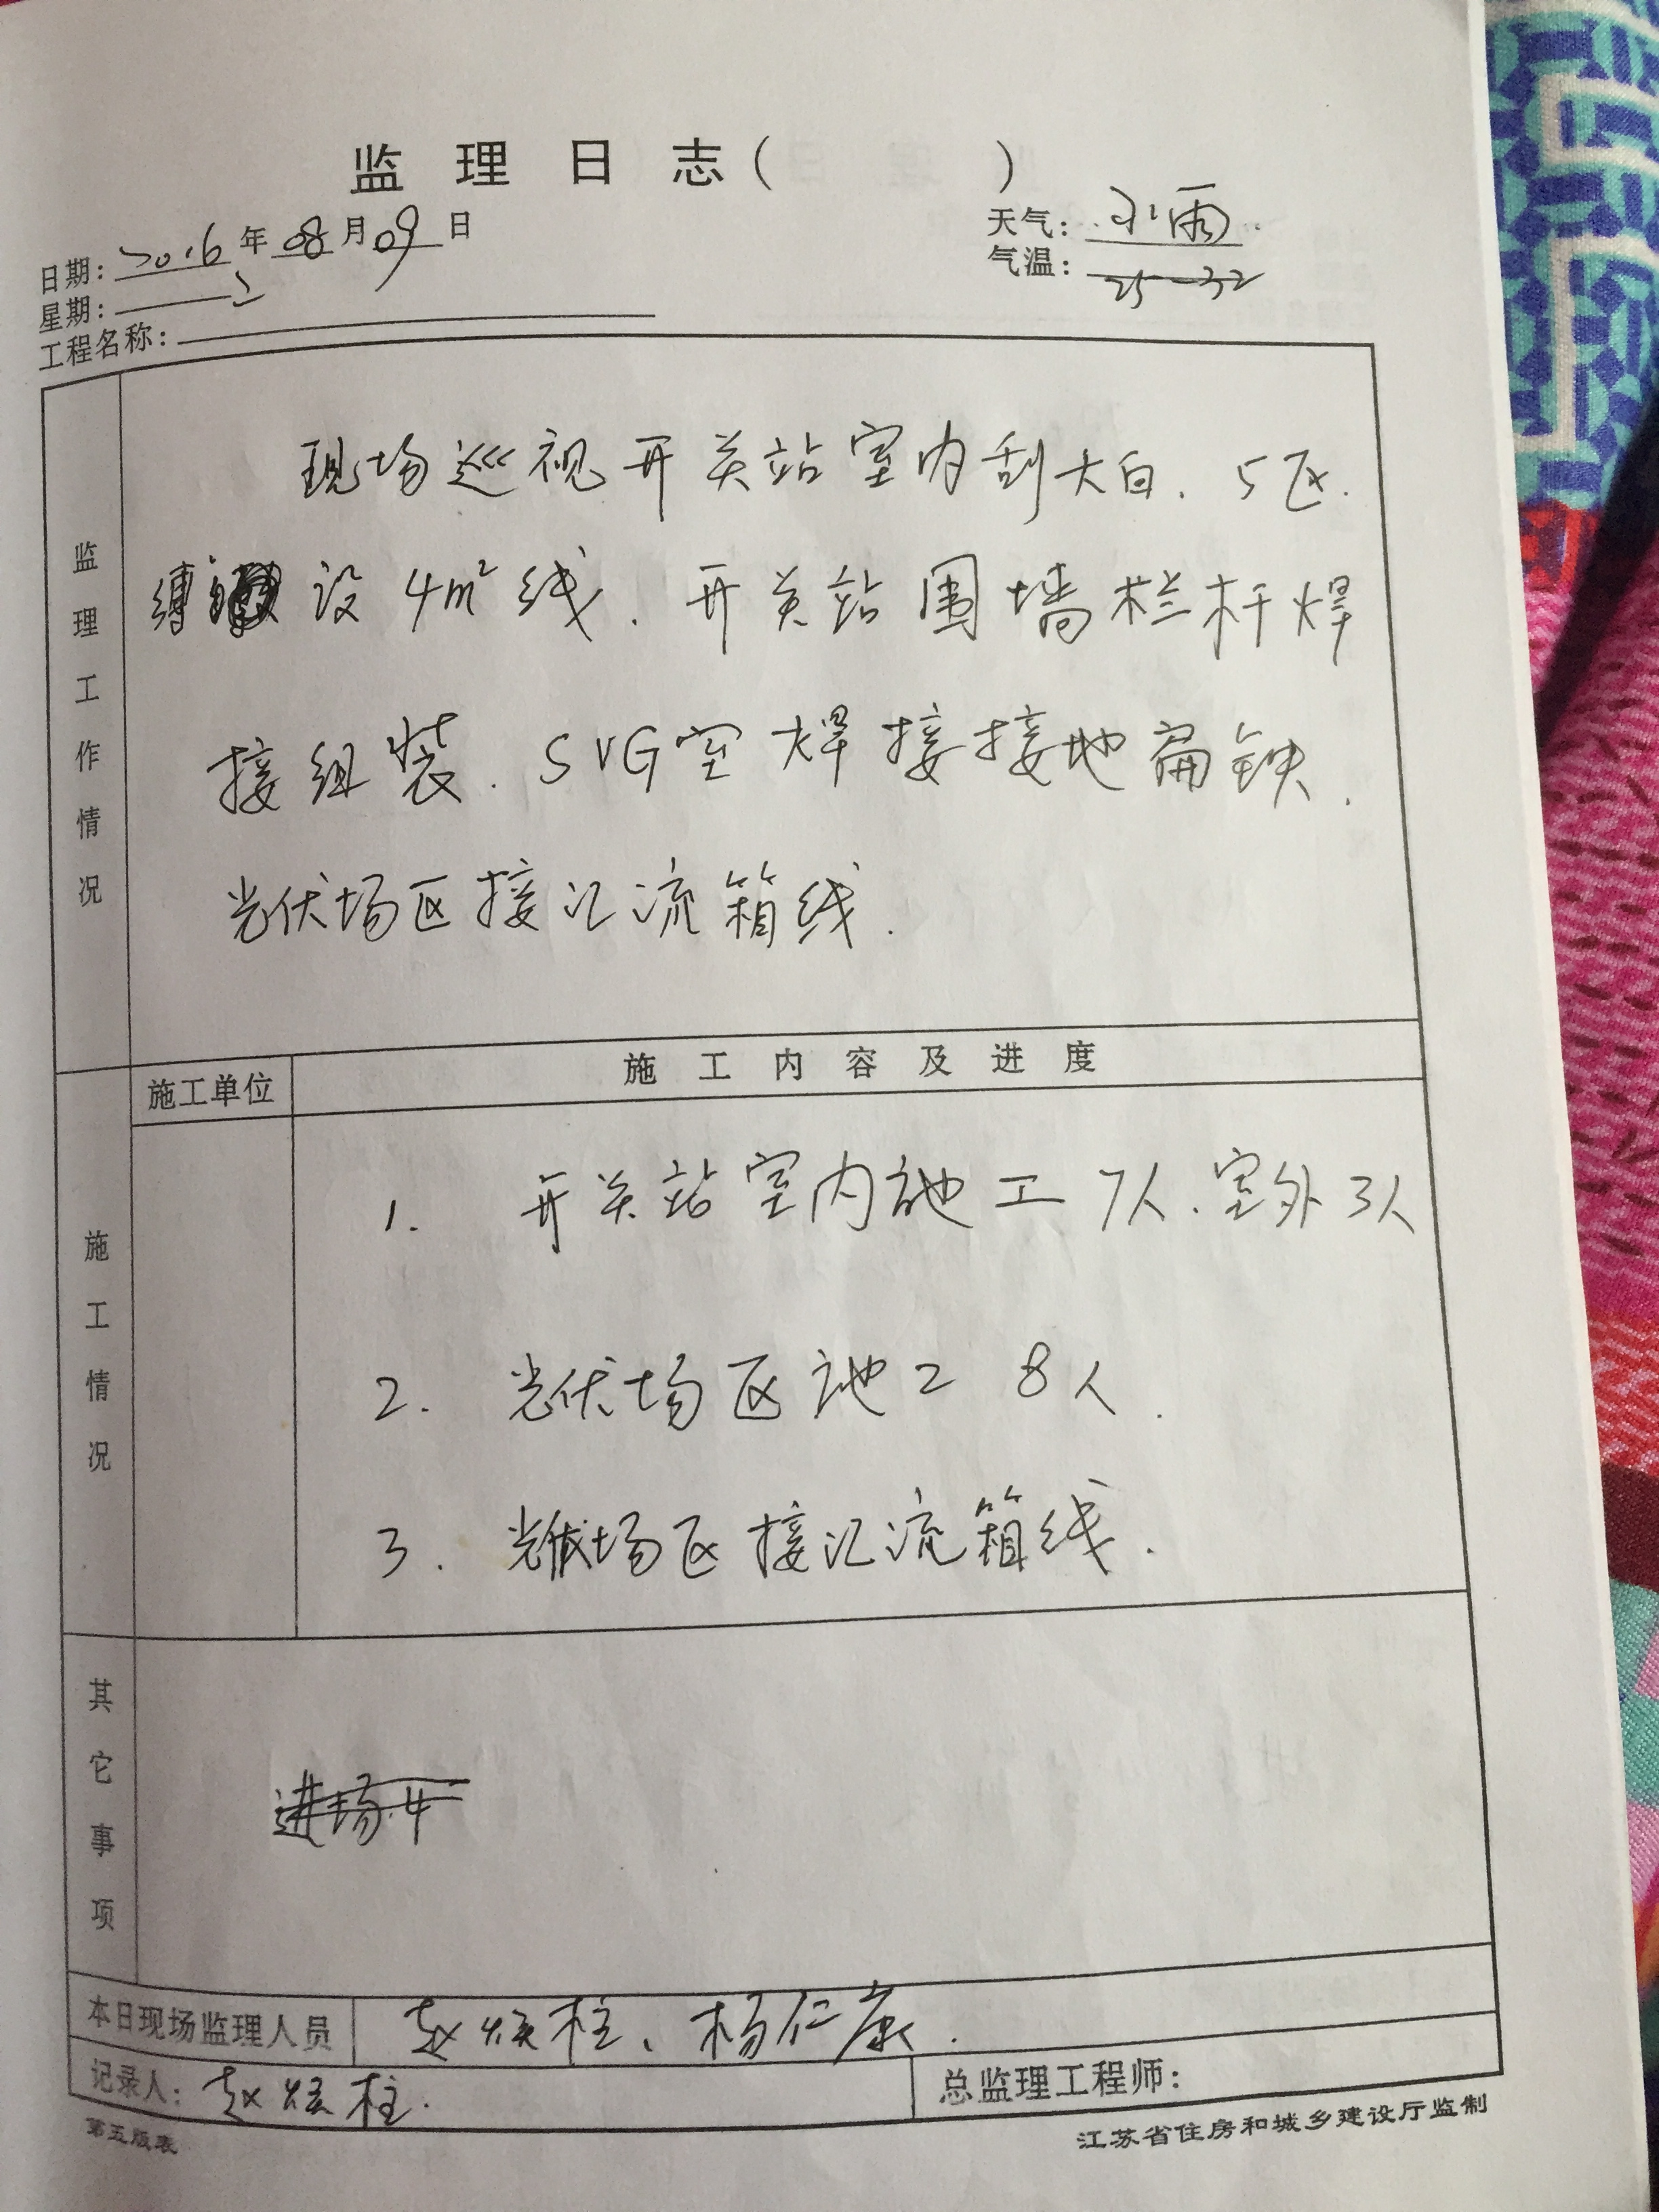 监理日志( )
日期: 2016年08月09日
天气: 小雨
星期: 二
气温: 25-32
工程名称:
监理工作情况
现场巡视开关站室内刮大白. 5区.
设 4m² 线. 开关站围墙栏杆焊
接组装. SVG室 焊接接地扁铁.
光伏场区接汇流箱线.
施工情况
施工单位
施工内容及进度
1. 开关站室内施工 7人. 室外3人
2. 光伏场区施工 8人.
3. 光伏场区接汇流箱线.
其它事项
进场.4
本日现场监理人员 赵焕柱、杨仁康.
记录人: 赵焕柱.
总监理工程师:
第五版表
江苏省住房和城乡建设厅监制